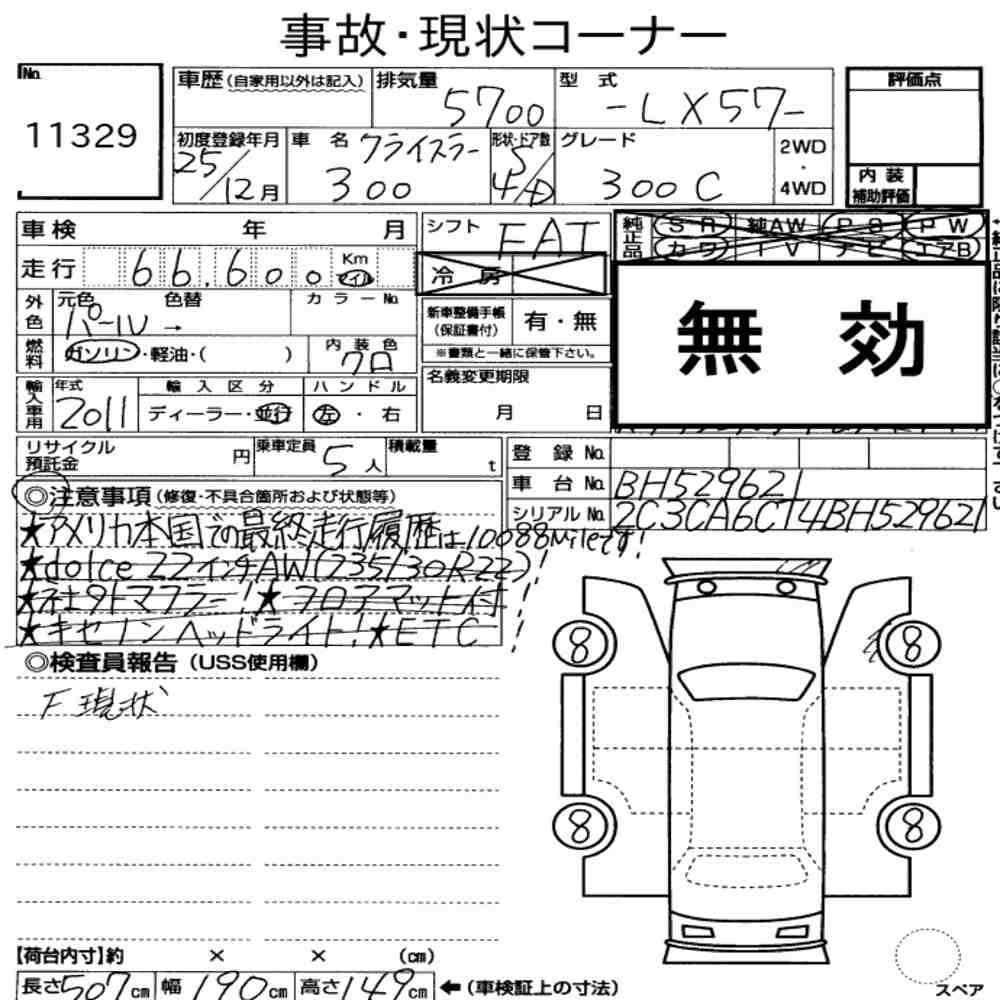 事故・現状コーナー
No.
11329
車歴(自家用以外は記入)
排気量
5700
型 式
-LX57-
評価点
初度登録年月
25/12月
車 名
クライスラー
300
形状・ドア数
5
4/D
グレード
300C
2WD
・
4WD
内 装
補助評価
車検 年 月
シフト
FAT
純正品
SR 純AW PS PW
カワ TV ナビ エアB
走行 66,600 Km マイル
冷 房
外色
元色 色替
パール →
カラーNo.
新車整備手帳
(保証書付)
有・無
※書類と一緒に保管下さい。
無 効
燃料
ガソリン・軽油・( )
内 装 色
クロ
名義変更期限
月 日
輸入車用
年式
2011
輸 入 区 分
ディーラー・並行
ハ ン ド ル
左 ・ 右
リサイクル
預託金
円
乗車定員
5人
積載量
t
登 録 No.
車 台 No. BH529621
シリアル No. 2C3CA6CT4BH529621
◎注意事項(修復・不具合箇所および状態等)
★アメリカ本国での最終走行履歴は10088Mileです!
★dolce 22インチAW(235/30R22)
★社外マフラー!★フロアマット付
★キセノンヘッドライト!★ETC
◎検査員報告(USS使用欄)
F 現状
8
8
8
8
【荷台内寸】約 × × (cm)
長さ507cm 幅190cm 高さ149cm ←(車検証上の寸法)
スペア